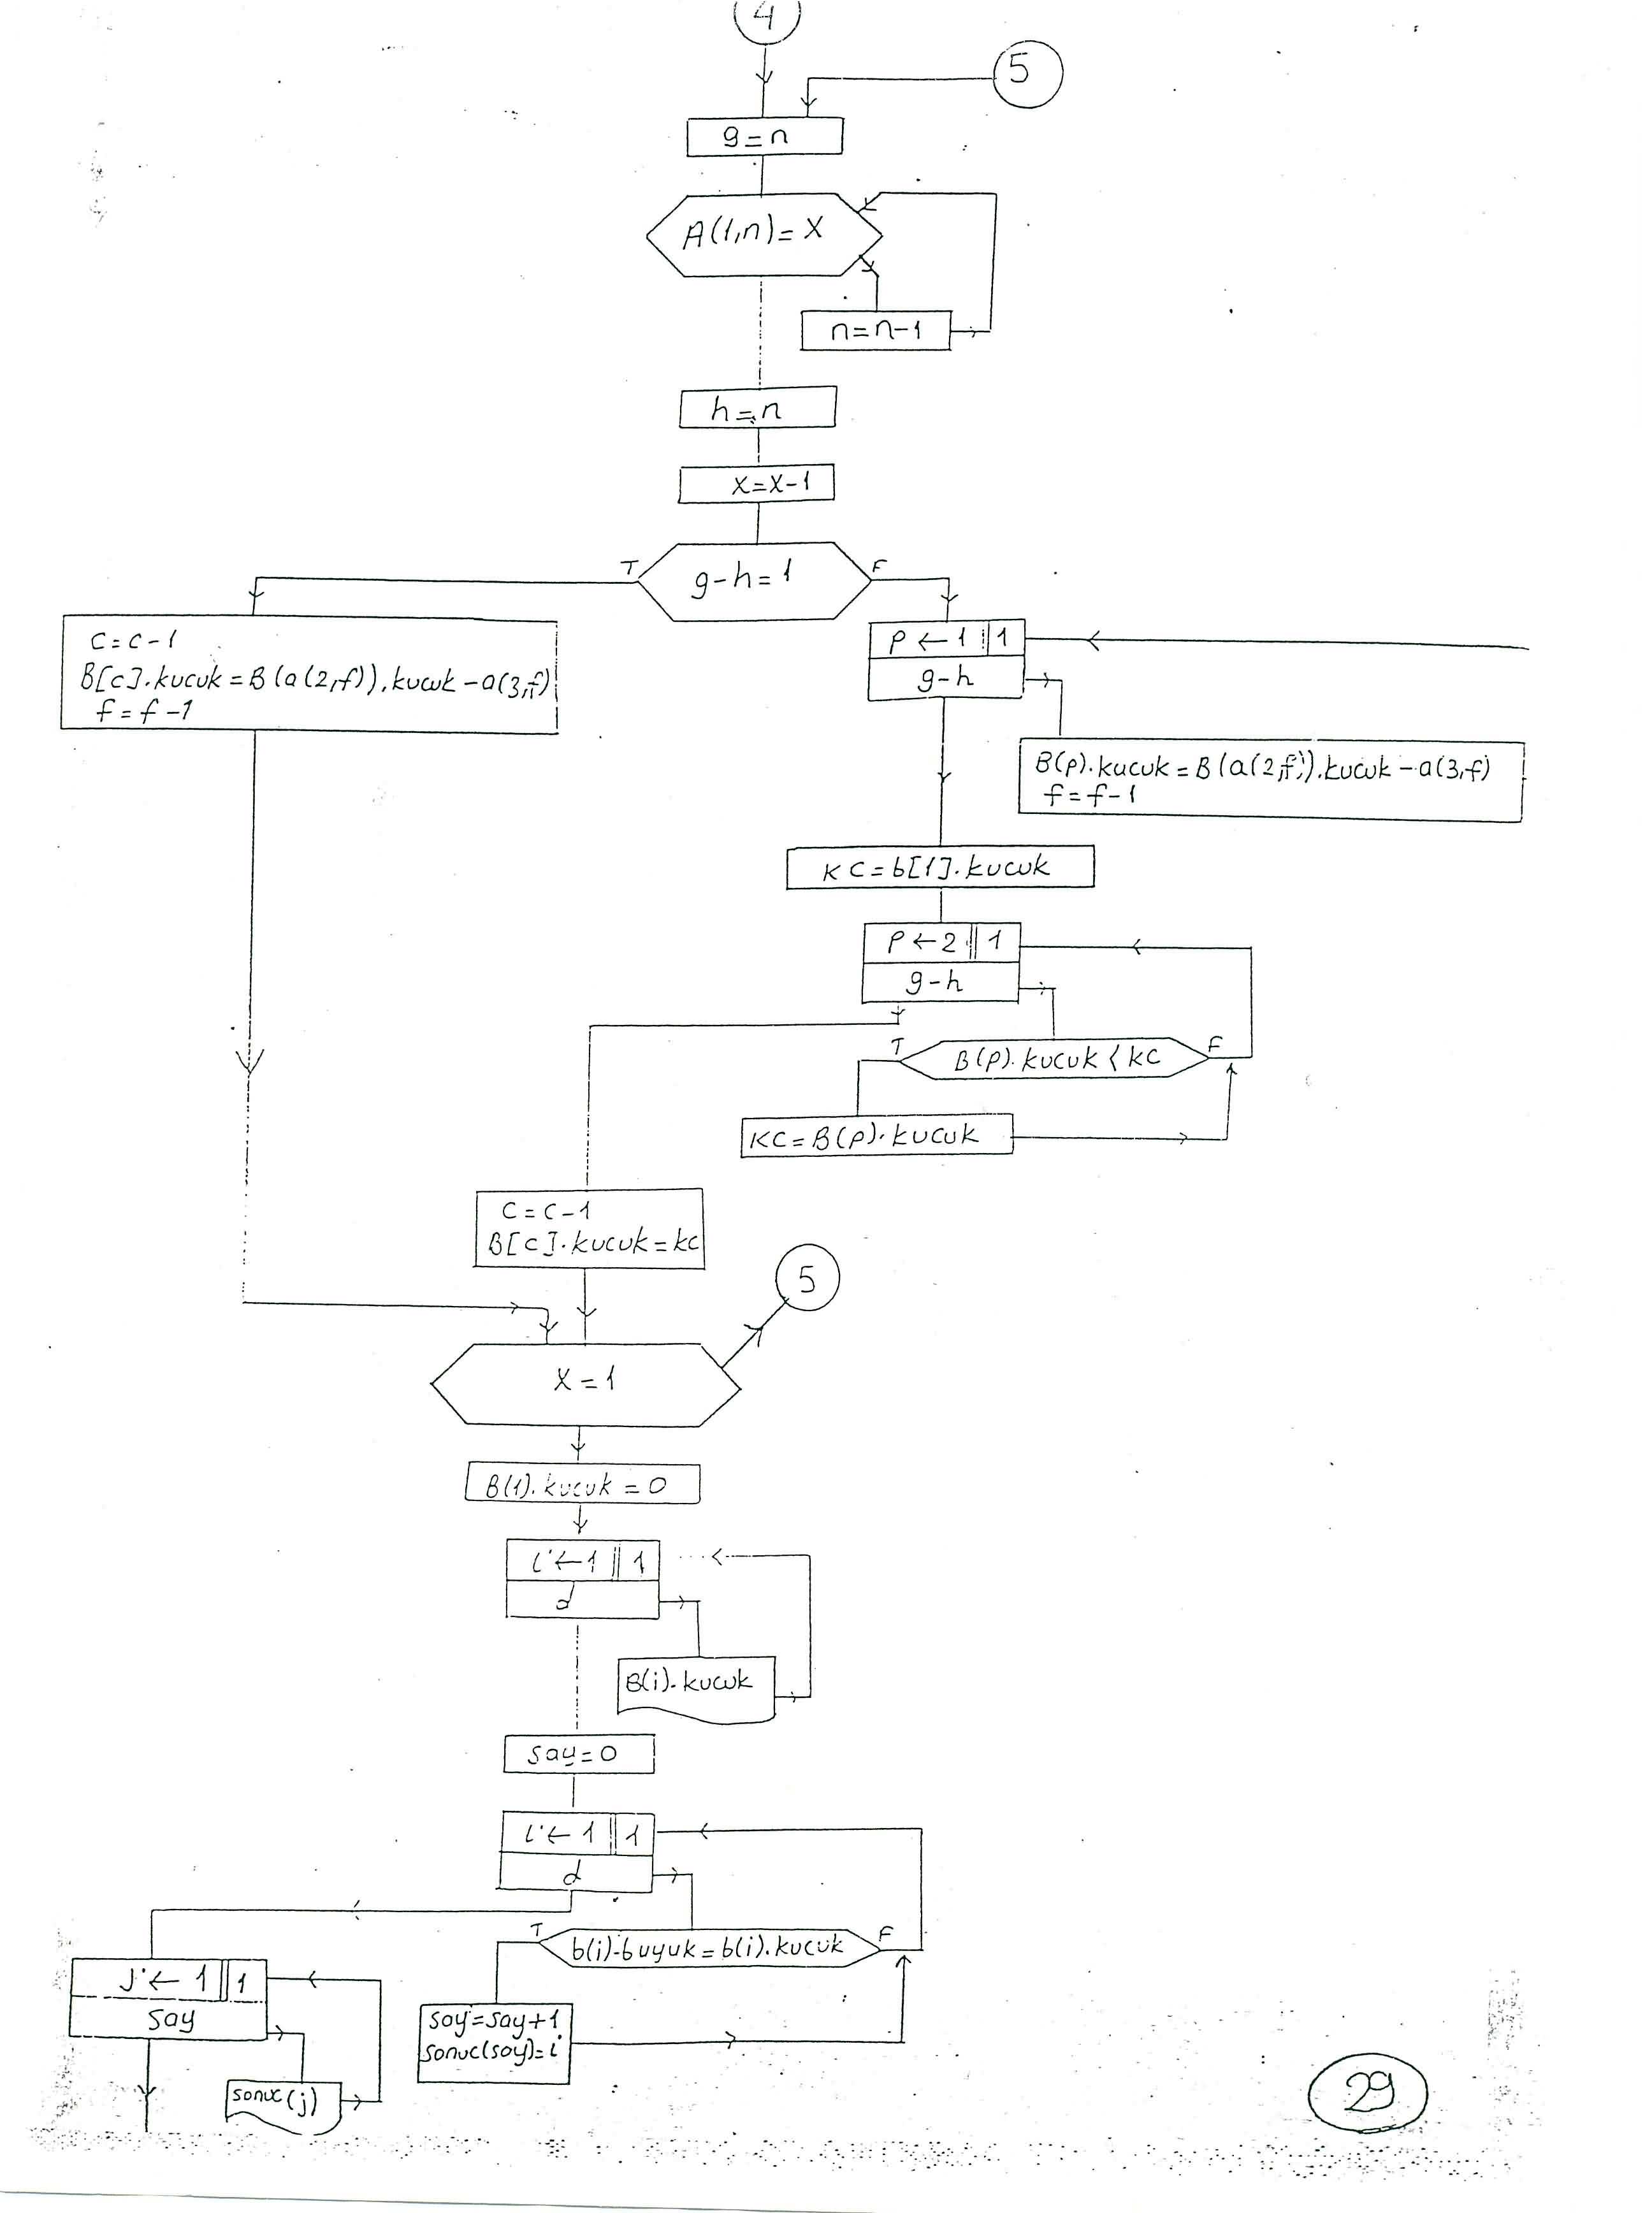 4
5
g=n
A(1,n)=X
n=n-1
h=n
X=X-1
T
g-h=1
F
C=c-1
B[c].kucuk=B(a(2,f)).kucuk-a(3,f)
f=f-1
P←1 1
g-h
B(p).kucuk=B(a(2,f)).kucuk-a(3,f)
f=f-1
KC=b[1].kucuk
P←2 1
g-h
T
B(p).kucuk<kc
F
KC=B(p).kucuk
C=c-1
B[c].kucuk=kc
5
X=1
B(1).kucuk=0
i←1 1
d
B(i).kucuk
say=0
i←1 1
d
T
b(i).buyuk=b(i).kucuk
F
j←1 1
say
say=say+1
sonuc(say)=i
sonuc(j)
29